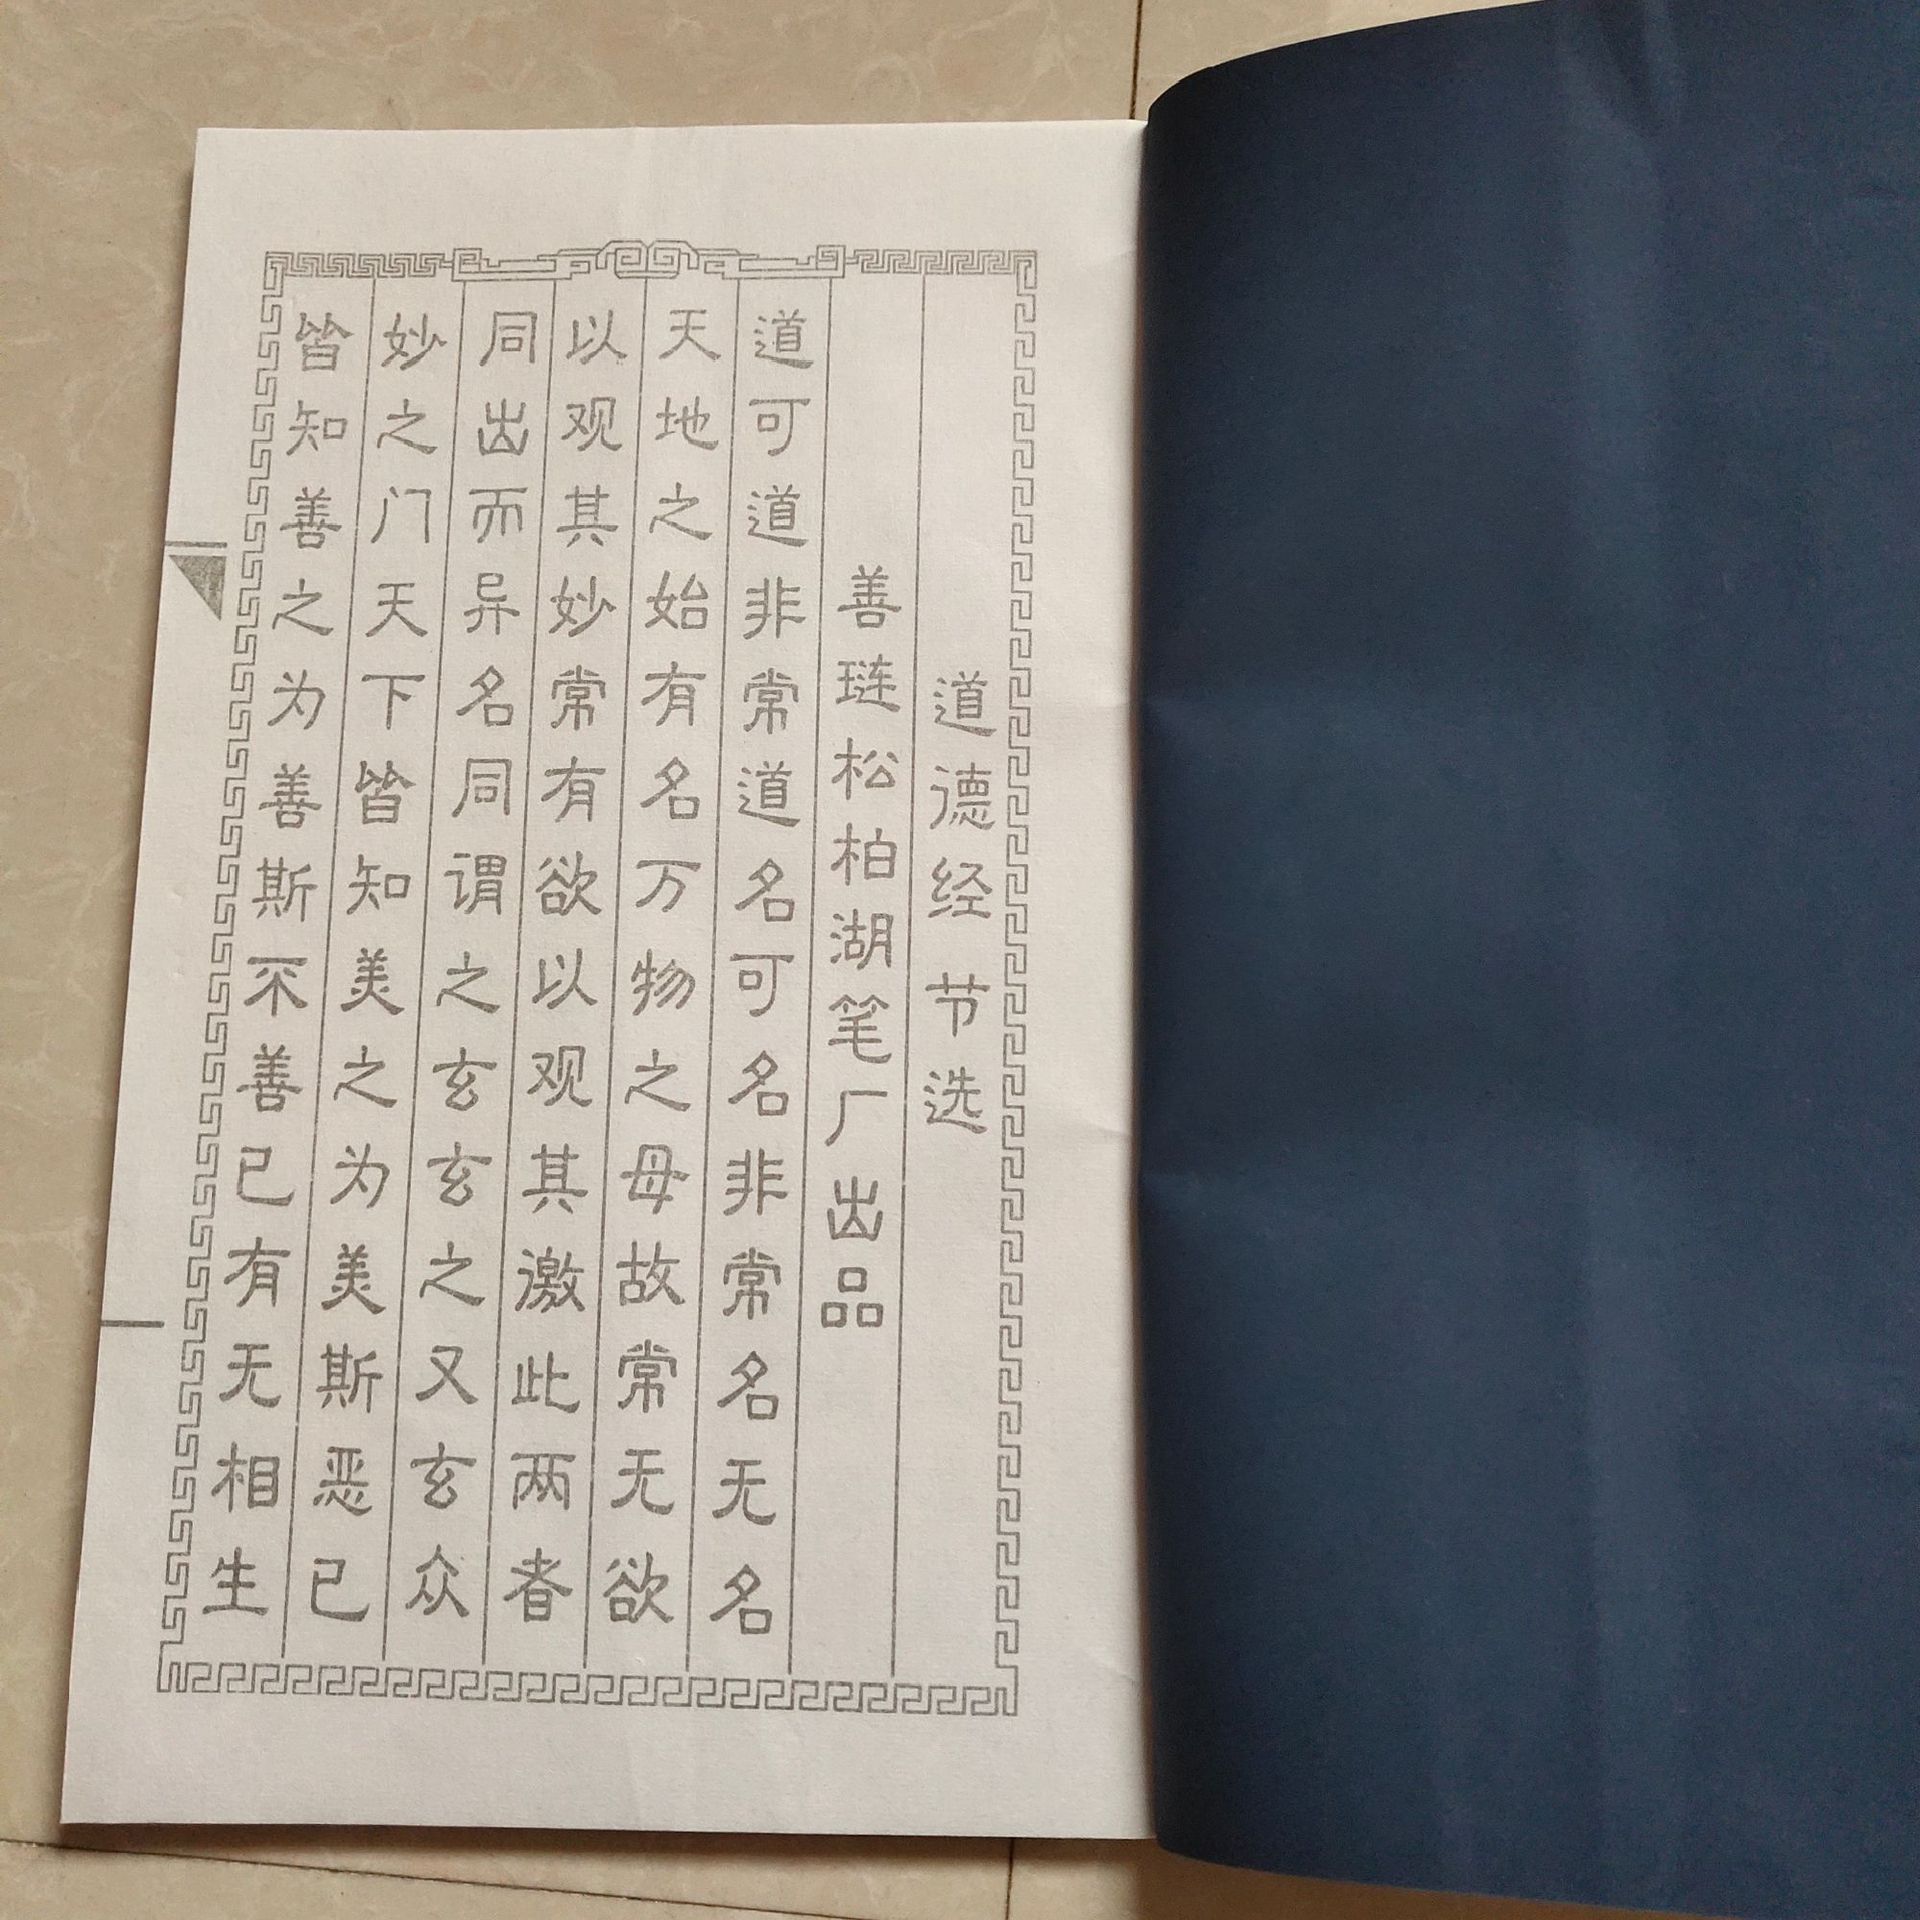 道德经节选
善琏松柏湖笔厂出品
道可道非常道名可名非常名无名
天地之始有名万物之母故常无欲
以观其妙常有欲以观其激此两者
同出而异名同谓之玄玄之又玄众
妙之门天下皆知美之为美斯恶已
皆知善之为善斯不善已有无相生